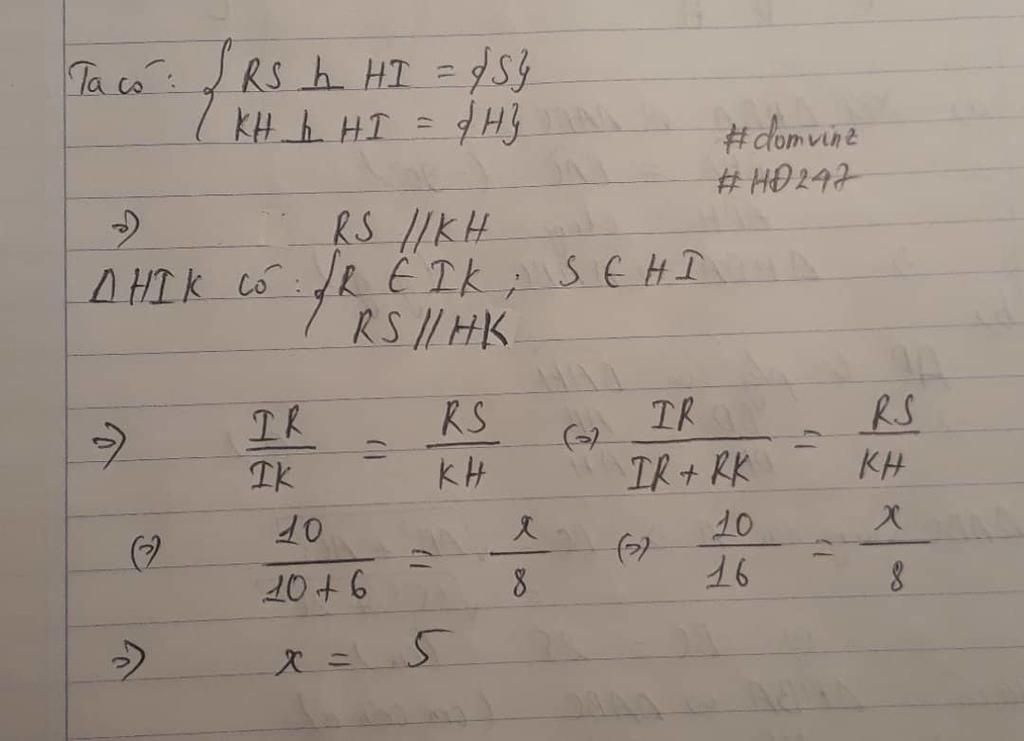 Ta có: { RS h HI = {S}
KH h HI = {H}
#domvinz
#HĐ247
=> RS // KH
Δ HIK có: { R ∈ IK ; S ∈ HI
RS // HK
=> IR/IK = RS/KH (=>) IR/(IR + RK) = RS/KH
(=>) 10/(10 + 6) = x/8 (=>) 10/16 = x/8
=> x = 5